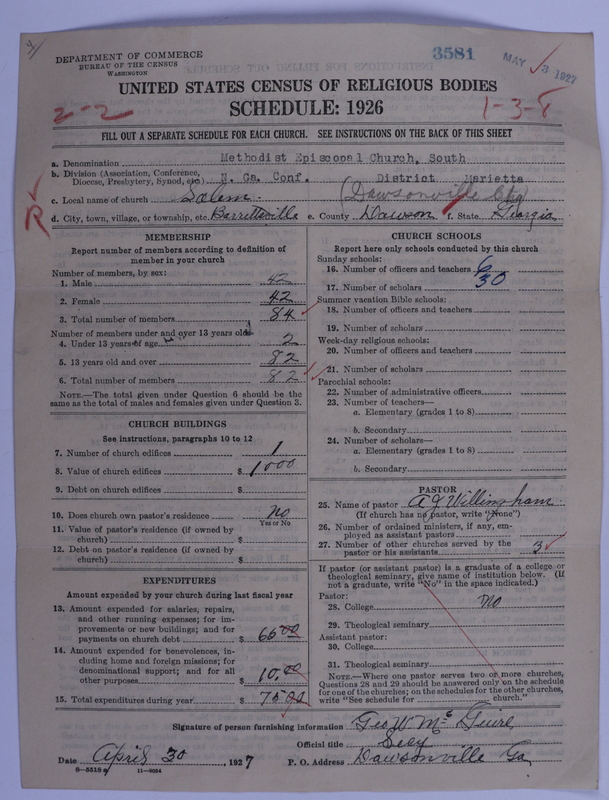 DEPARTMENT OF COMMERCE
BUREAU OF THE CENSUS
WASHINGTON
3581
MAY 3 1927
UNITED STATES CENSUS OF RELIGIOUS BODIES
2-2
SCHEDULE: 1926
1-3-8
FILL OUT A SEPARATE SCHEDULE FOR EACH CHURCH. SEE INSTRUCTIONS ON THE BACK OF THIS SHEET
a. Denomination Methodist Episcopal Church, South
b. Division (Association, Conference, Diocese, Presbytery, Synod, etc) N. Ga. Conf. District Marietta
c. Local name of church Salem (Dawsonville
R
d. City, town, village, or township, etc. Barrettsville e. County Dawson f. State Georgia
MEMBERSHIP
Report number of members according to definition of
member in your church
Number of members, by sex:
1. Male 42
2. Female 42
3. Total number of members 84
Number of members under and over 13 years old:
4. Under 13 years of age 2
5. 13 years old and over 82
6. Total number of members 82
NOTE.—The total given under Question 6 should be
same as the total of males and females given under Question 3.
CHURCH BUILDINGS
See instructions, paragraphs 10 to 12
7. Number of church edifices 1
8. Value of church edifices $1000
9. Debt on church edifices $
10. Does church own pastor's residence No
Yes or No
11. Value of pastor's residence (if owned by
church) $
12. Debt on pastor's residence (if owned by
church) $
EXPENDITURES
Amount expended by your church during last fiscal year
13. Amount expended for salaries, repairs,
and other running expenses; for im-
provements or new buildings; and for
payments on church debt $ 65 00
14. Amount expended for benevolences, in-
cluding home and foreign missions; for
denominational support; and for all
other purposes $ 10.00
15. Total expenditures during year $ 75 00
CHURCH SCHOOLS
Report here only schools conducted by this church
Sunday schools:
16. Number of officers and teachers 6
17. Number of scholars 30
Summer vacation Bible schools:
18. Number of officers and teachers
19. Number of scholars
Week-day religious schools:
20. Number of officers and teachers
21. Number of scholars
Parochial schools:
22. Number of administrative officers
23. Number of teachers—
a. Elementary (grades 1 to 8)
b. Secondary
24. Number of scholars—
a. Elementary (grades 1 to 8)
b. Secondary
PASTOR
25. Name of pastor A J
(If church has no pastor, write "None")
26. Number of ordained ministers, if any, em-
ployed as assistant pastors
27. Number of other churches served by the
pastor or his assistants 3
If pastor (or assistant pastor) is a graduate of a college or
theological seminary, give name of institution below. (If
not a graduate, write "No" in the space indicated.)
Pastor:
28. College No
29. Theological seminary
Assistant pastor:
30. College
31. Theological seminary
NOTE.—Where one pastor serves two or more churches,
Questions 28 and 29 should be answered only on the schedule
for one of the churches; on the schedules for the other churches,
write "See schedule for church."
Signature of person furnishing information Geo W McGuire
Official title Secy
Date April 30, 1927 P. O. Address Dawsonville Ga
8-5518a 11-8024